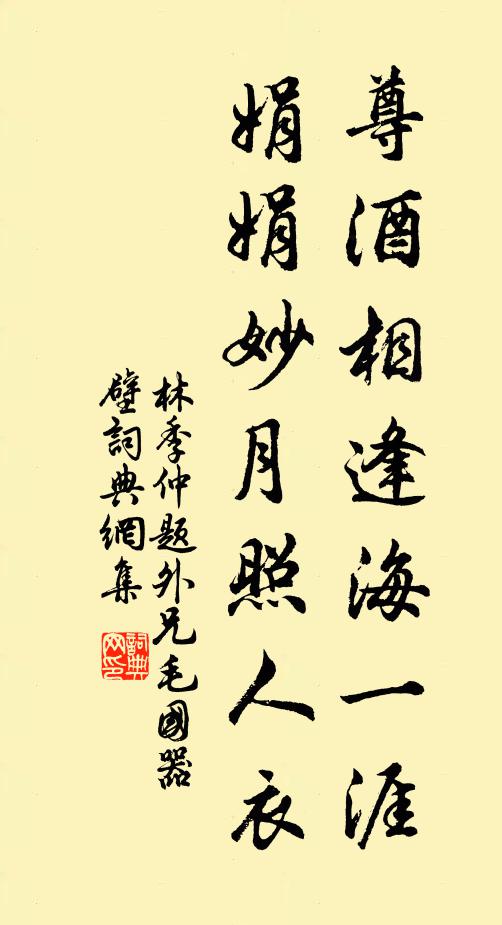 尊酒相逢海一涯
娟娟妙月照人衣
林季仲題外兄毛國器
壁詞典網集
詞典
网印